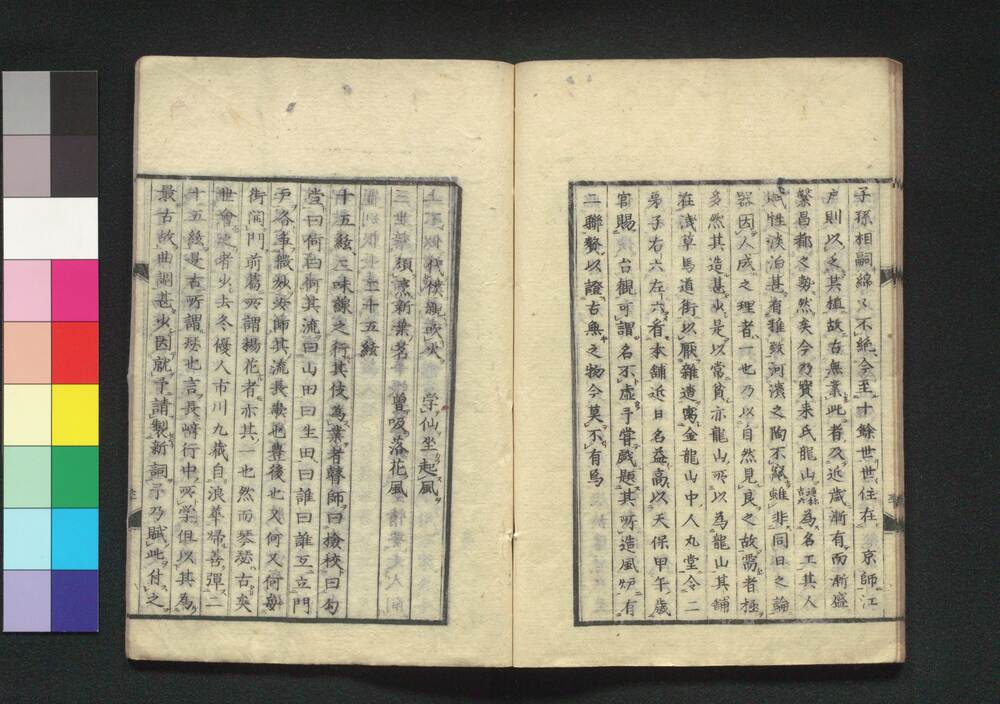 子孫相嗣綿〻不絶今至十餘世世住在京師江
戸則以之其植故古無業此者久近歳漸有而漸盛
繁昌都之勢然矣今乃寳来氏龍山為名工其人
性淡泊甚有雅致河濱之陶不窳雖非同日之論
器因人成之理者一也乃以自然見良之故需者極
多然其造甚少是以常貧亦龍山所以為龍山其舗
在浅草馬道街以厭雜遝寓金龍山中人丸堂令二
弟子右六左六看本舗近日名益高以天保甲午歳
官賜台觀可謂名不虚乎嘗戯題其所造風炉有
二聯贅以證古無之物今莫不有焉
学仙坐起風
三世新須煮新葉茗曽吸落花風
二十五絃
十五絃三味線之行其伎為業者瞽師曰撿挍曰勾
當曰何曰何其流曰山田曰生田曰誰曰誰互立門
戸各爭職狄女師其流長歌也豊後也又何又何
街閭門前葛所謂楊花者亦其一也然而琴瑟古矣
世會之者少去冬優人市川九蔵自浪華帰善弾二
十五絃是古所謂瑟也言長崎行中所学但以其為
最古故曲調甚少因就予請製新詞予乃賦此付之